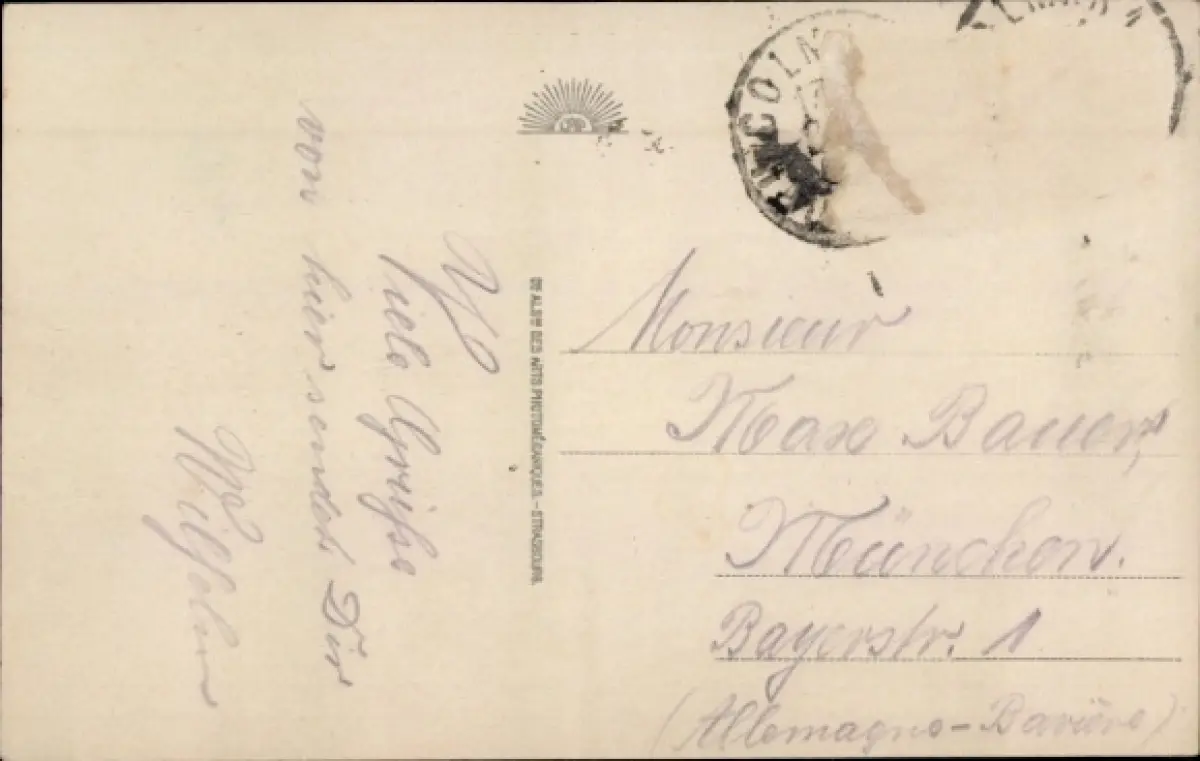 Viele Grüße
von hier sendet Dir
Wilhelm
Cie ALSne DES ARTS PHOTOMÉCANIQUES. - STRASBOURG.
COLM
Monsieur
Max Bauer,
München.
Bayerstr. 1
(Allemagne-Bavière)